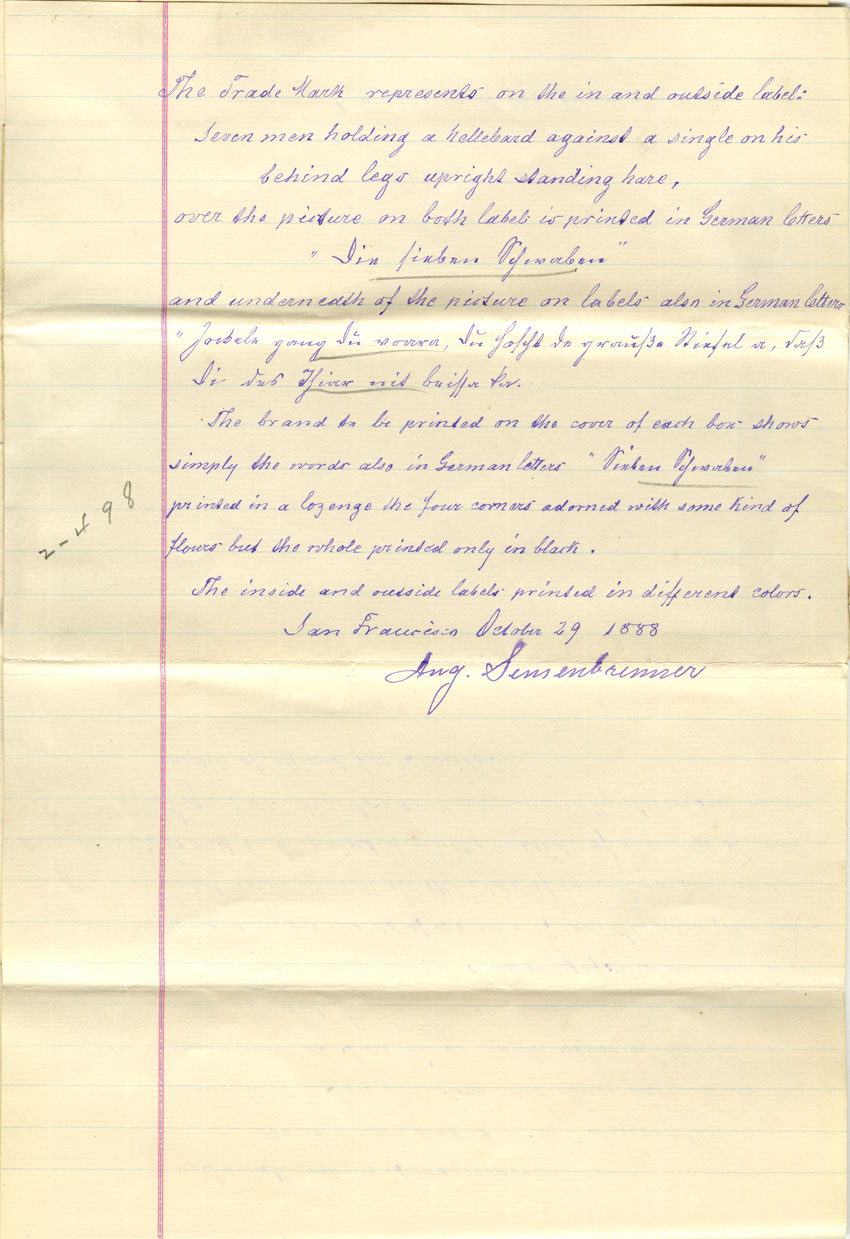 The Trade Mark represents on the in and outside label:
Seven men holding a hellebard against a single on his
behind legs upright standing hare,
over the picture on both labels is printed in German letters
"Die sieben Schwaben"
and underneath of the picture on labels also in German letters
"Jockele gang Du voara, Du hoscht de grauße Stiefel a, daß
Di des Thiar nit beissa ka.
The brand to be printed on the cover of each box shows
simply the words also in German letters "Sieben Schwaben"
printed in a lozenge the four corners adorned with some kind of
flours but the whole printed only in black.
The inside and outside labels printed in different colors.
San Francisco October 29 1888
Aug. Sensenbrenner
2-498